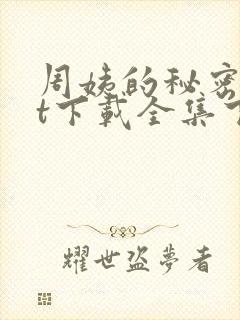 周姨的秘密
t下载全集
耀世盗梦者